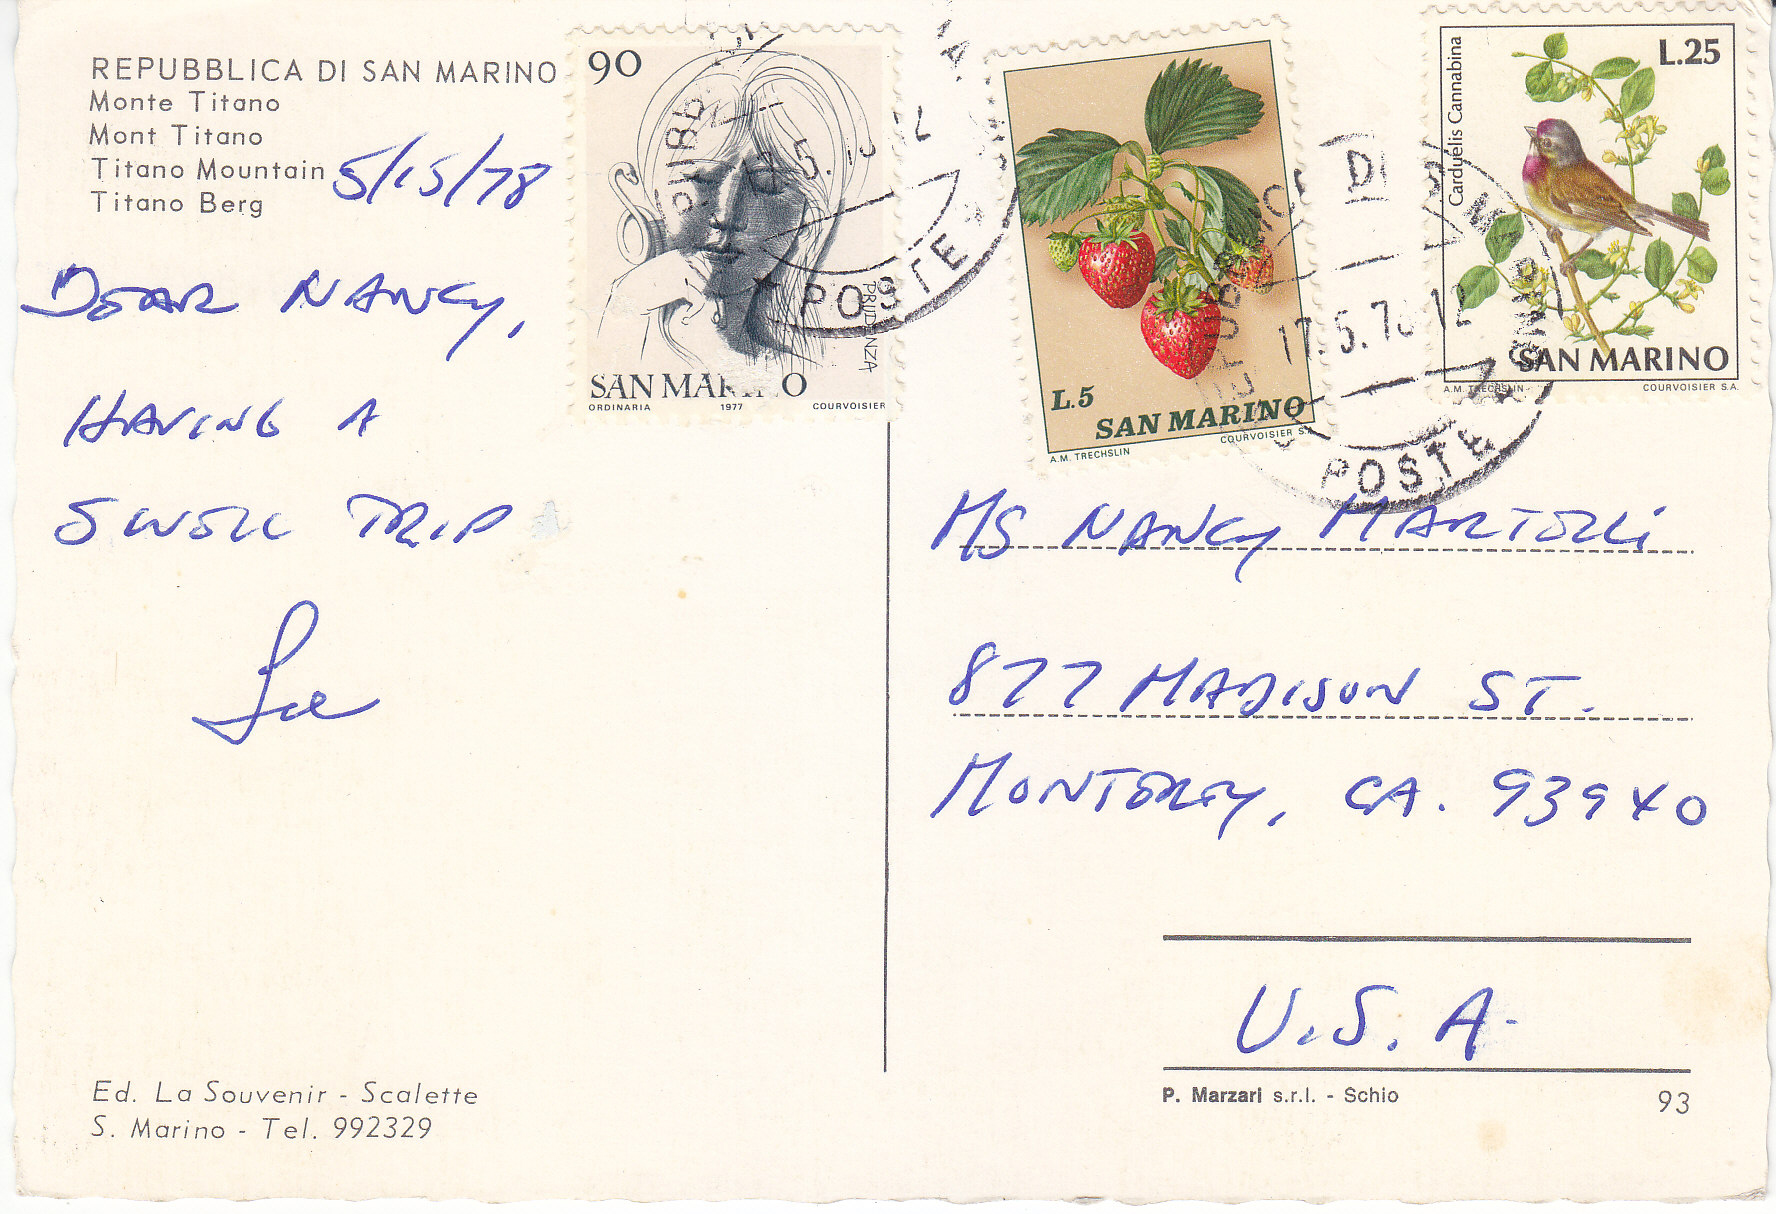 REPUBBLICA DI SAN MARINO
Monte Titano
Mont Titano
Titano Mountain
Titano Berg
5/15/78
DEAR NANCY,
HAVING A
SWELL TRIP
90
PRUDENZA
SAN MARINO
ORDINARIA 1977 COURVOISIER
POSTE
L.5
SAN MARINO
A.M. TRECHSLIN COURVOISIER S.A.
L.25
Carduelis Cannabina
SAN MARINO
A.M. TRECHSLIN COURVOISIER S.A.
17.5.78 12
POSTE
MS NANCY MARTELLI
877 MADISON ST.
MONTEREY, CA. 93940
U.S.A.
Ed. La Souvenir - Scalette
S. Marino - Tel. 992329
P. Marzari s.r.l. - Schio
93